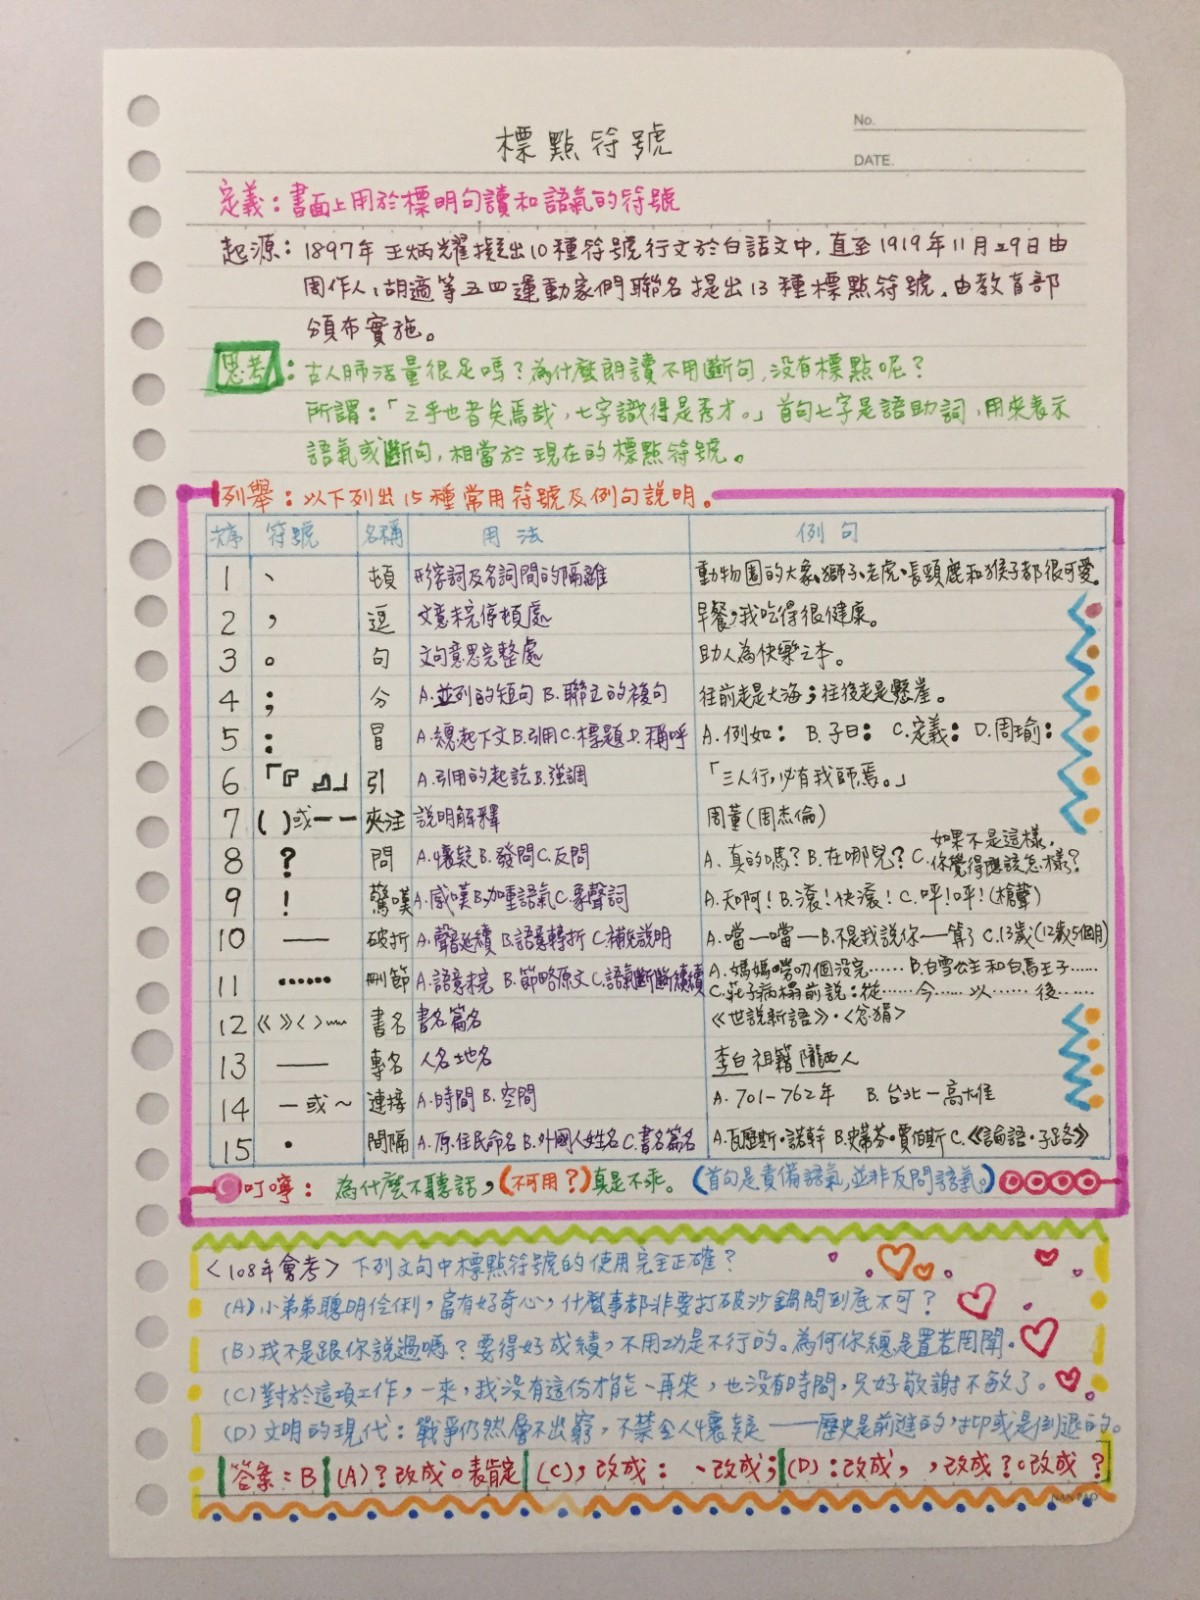 標點符號
No.
DATE.
定義：書面上用於標明句讀和語氣的符號
起源：1897年王炳耀擬出10種符號行文於白話文中，直至1919年11月29日由
周作人、胡適等五四運動家們聯名提出13種標點符號，由教育部
頒布實施。
思考：古人肺活量很足嗎？為什麼朗讀不用斷句，沒有標點呢？
所謂：「之乎也者矣焉哉，七字識得是秀才。」首句七字是語助詞，用來表示
語氣或斷句，相當於現在的標點符號。
列舉：以下列出15種常用符號及例句說明。
次序 符號 名稱 用法 例句
1 、 頓 形容詞及名詞間的隔離 動物園的大象、獅子、老虎、長頸鹿和猴子都很可愛。
2 ， 逗 文意未完停頓處 早餐，我吃得很健康。
3 。 句 文句意思完整處 助人為快樂之本。
4 ； 分 A.並列的短句 B.聯立的複句 往前走是大海；往後走是懸崖。
5 ： 冒 A.總起下文 B.引用 C.標題 D.稱呼 A.例如： B.子曰： C.定義： D.周瑜：
6 「『 』」 引 A.引用的起訖 B.強調 「三人行，必有我師焉。」
7 ( )或—— 夾注 說明解釋 周董(周杰倫)
8 ？ 問 A.懷疑 B.發問 C.反問 A.真的嗎？ B.在哪兒？ C.如果不是這樣，你覺得應該怎樣？
9 ！ 驚嘆 A.感嘆 B.加重語氣 C.象聲詞 A.天啊！ B.滾！快滾！ C.呯！呯！(槍聲)
10 —— 破折 A.聲音延續 B.語意轉折 C.補充說明 A.噹—噹— B.不是我說你——算了 C.13歲(12歲5個月)
11 …… 刪節 A.語意未完 B.節略原文 C.語氣斷斷續續 A.媽媽嘮叨個沒完…… B.白雪公主和白馬王子……
C.莊子病榻前說：從……今……以……後……
12 《 》〈 〉﹏ 書名 書名篇名 《世說新語》·〈忿狷〉
13 —— 專名 人名地名 李白祖籍隴西人
14 －或～ 連接 A.時間 B.空間 A.701－762年 B.台北－高雄
15 · 間隔 A.原住民命名 B.外國人姓名 C.書名篇名 A.瓦歷斯·諾幹 B.史蒂芬·賈伯斯 C.《論語·子路》
叮嚀：為什麼不聽話，(不可用？)真是不乖。(首句是責備語氣，並非反問語氣。)
〈108年會考〉下列文句中標點符號的使用完全正確？
(A)小弟弟聰明伶俐，富有好奇心，什麼事都非要打破沙鍋問到底不可？
(B)我不是跟你說過嗎？要得好成績，不用功是不行的。為何你總是置若罔聞。
(C)對於這項工作，一來，我沒有這份才能、再來，也沒有時間，只好敬謝不敏了。
(D)文明的現代：戰爭仍然層不出窮，不禁令人懷疑——歷史是前進的，抑或是倒退的。
答案：B (A)？改成。表肯定 (C)，改成： 、改成； (D)：改成， ，改成？。改成？
NAN PAO